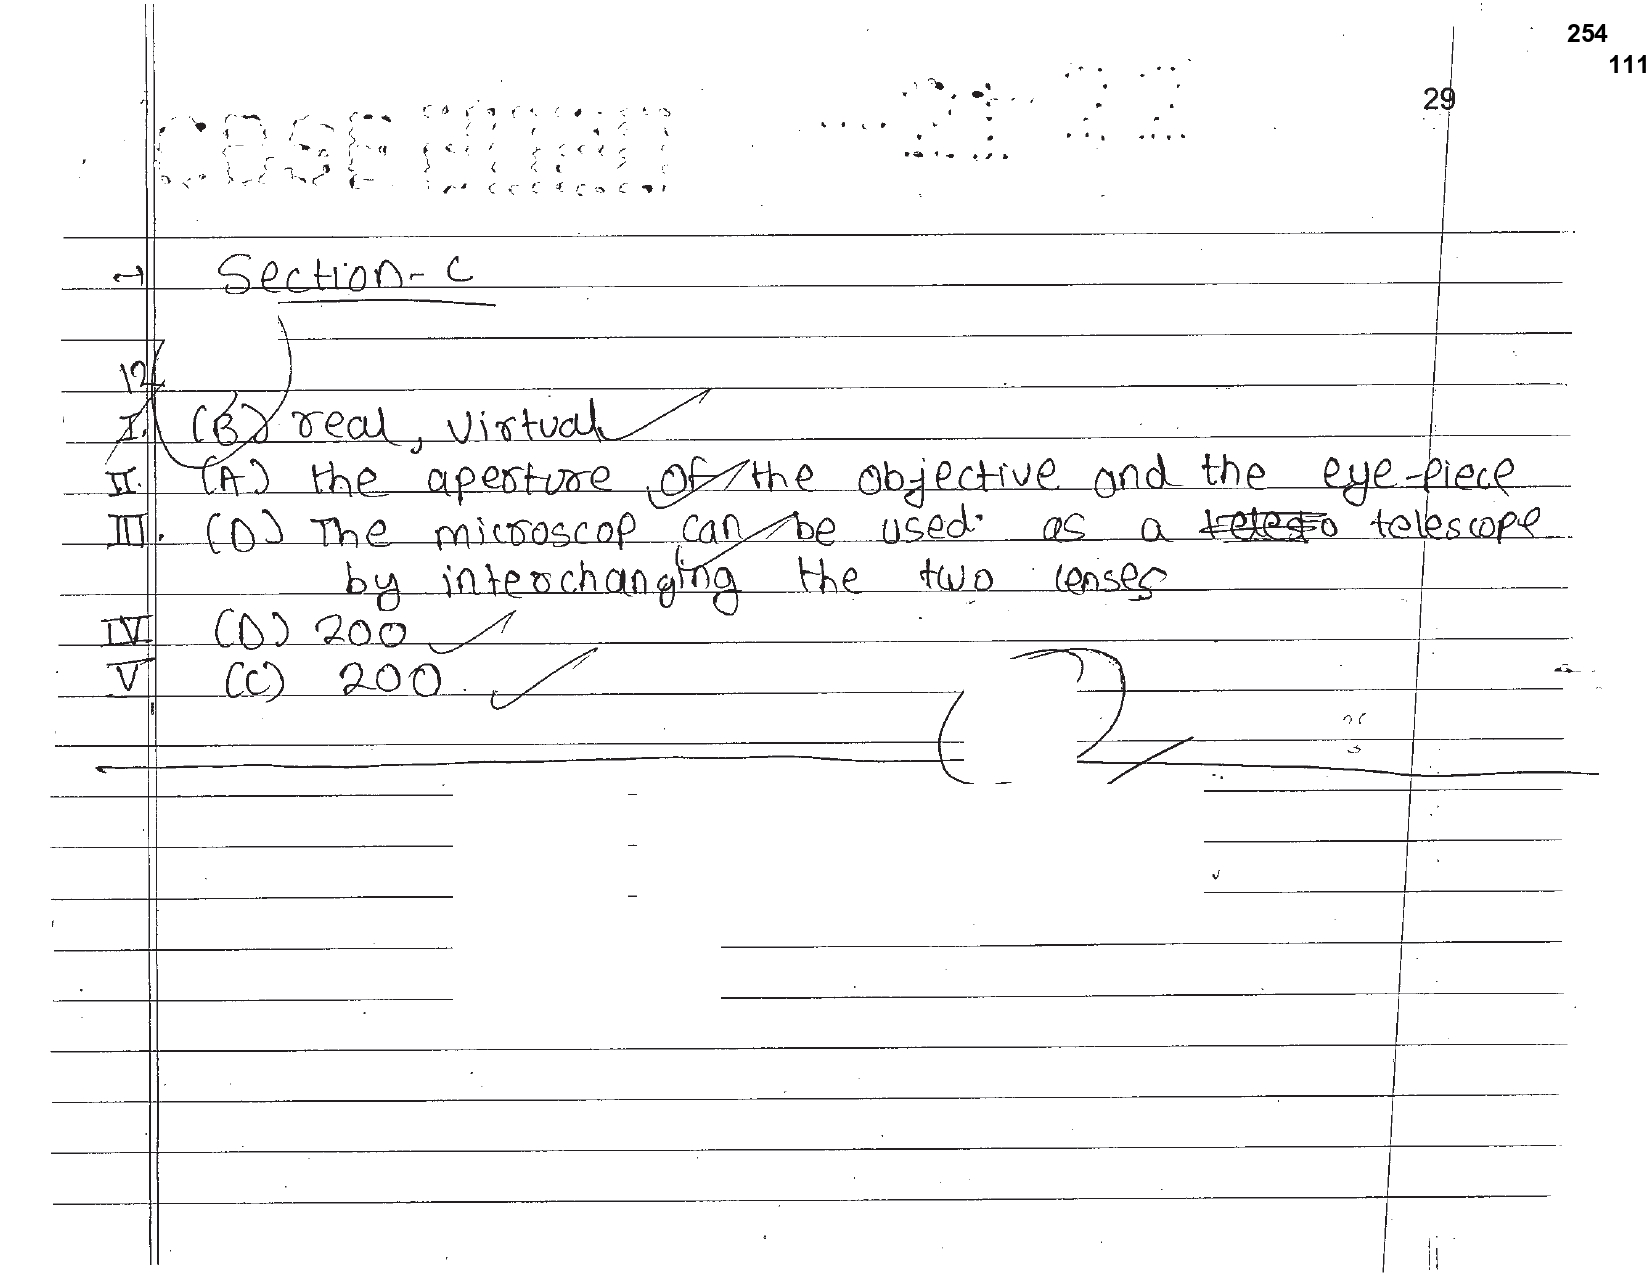 254
111
29
CBSE
21-22
Section-C
12
I. (B) real, virtual
II. (A) the aperture of the objective and the eye-piece
III. (D) The microscop can be used as a telescope
by interchanging the two lenses
IV (D) 200
V (C) 200